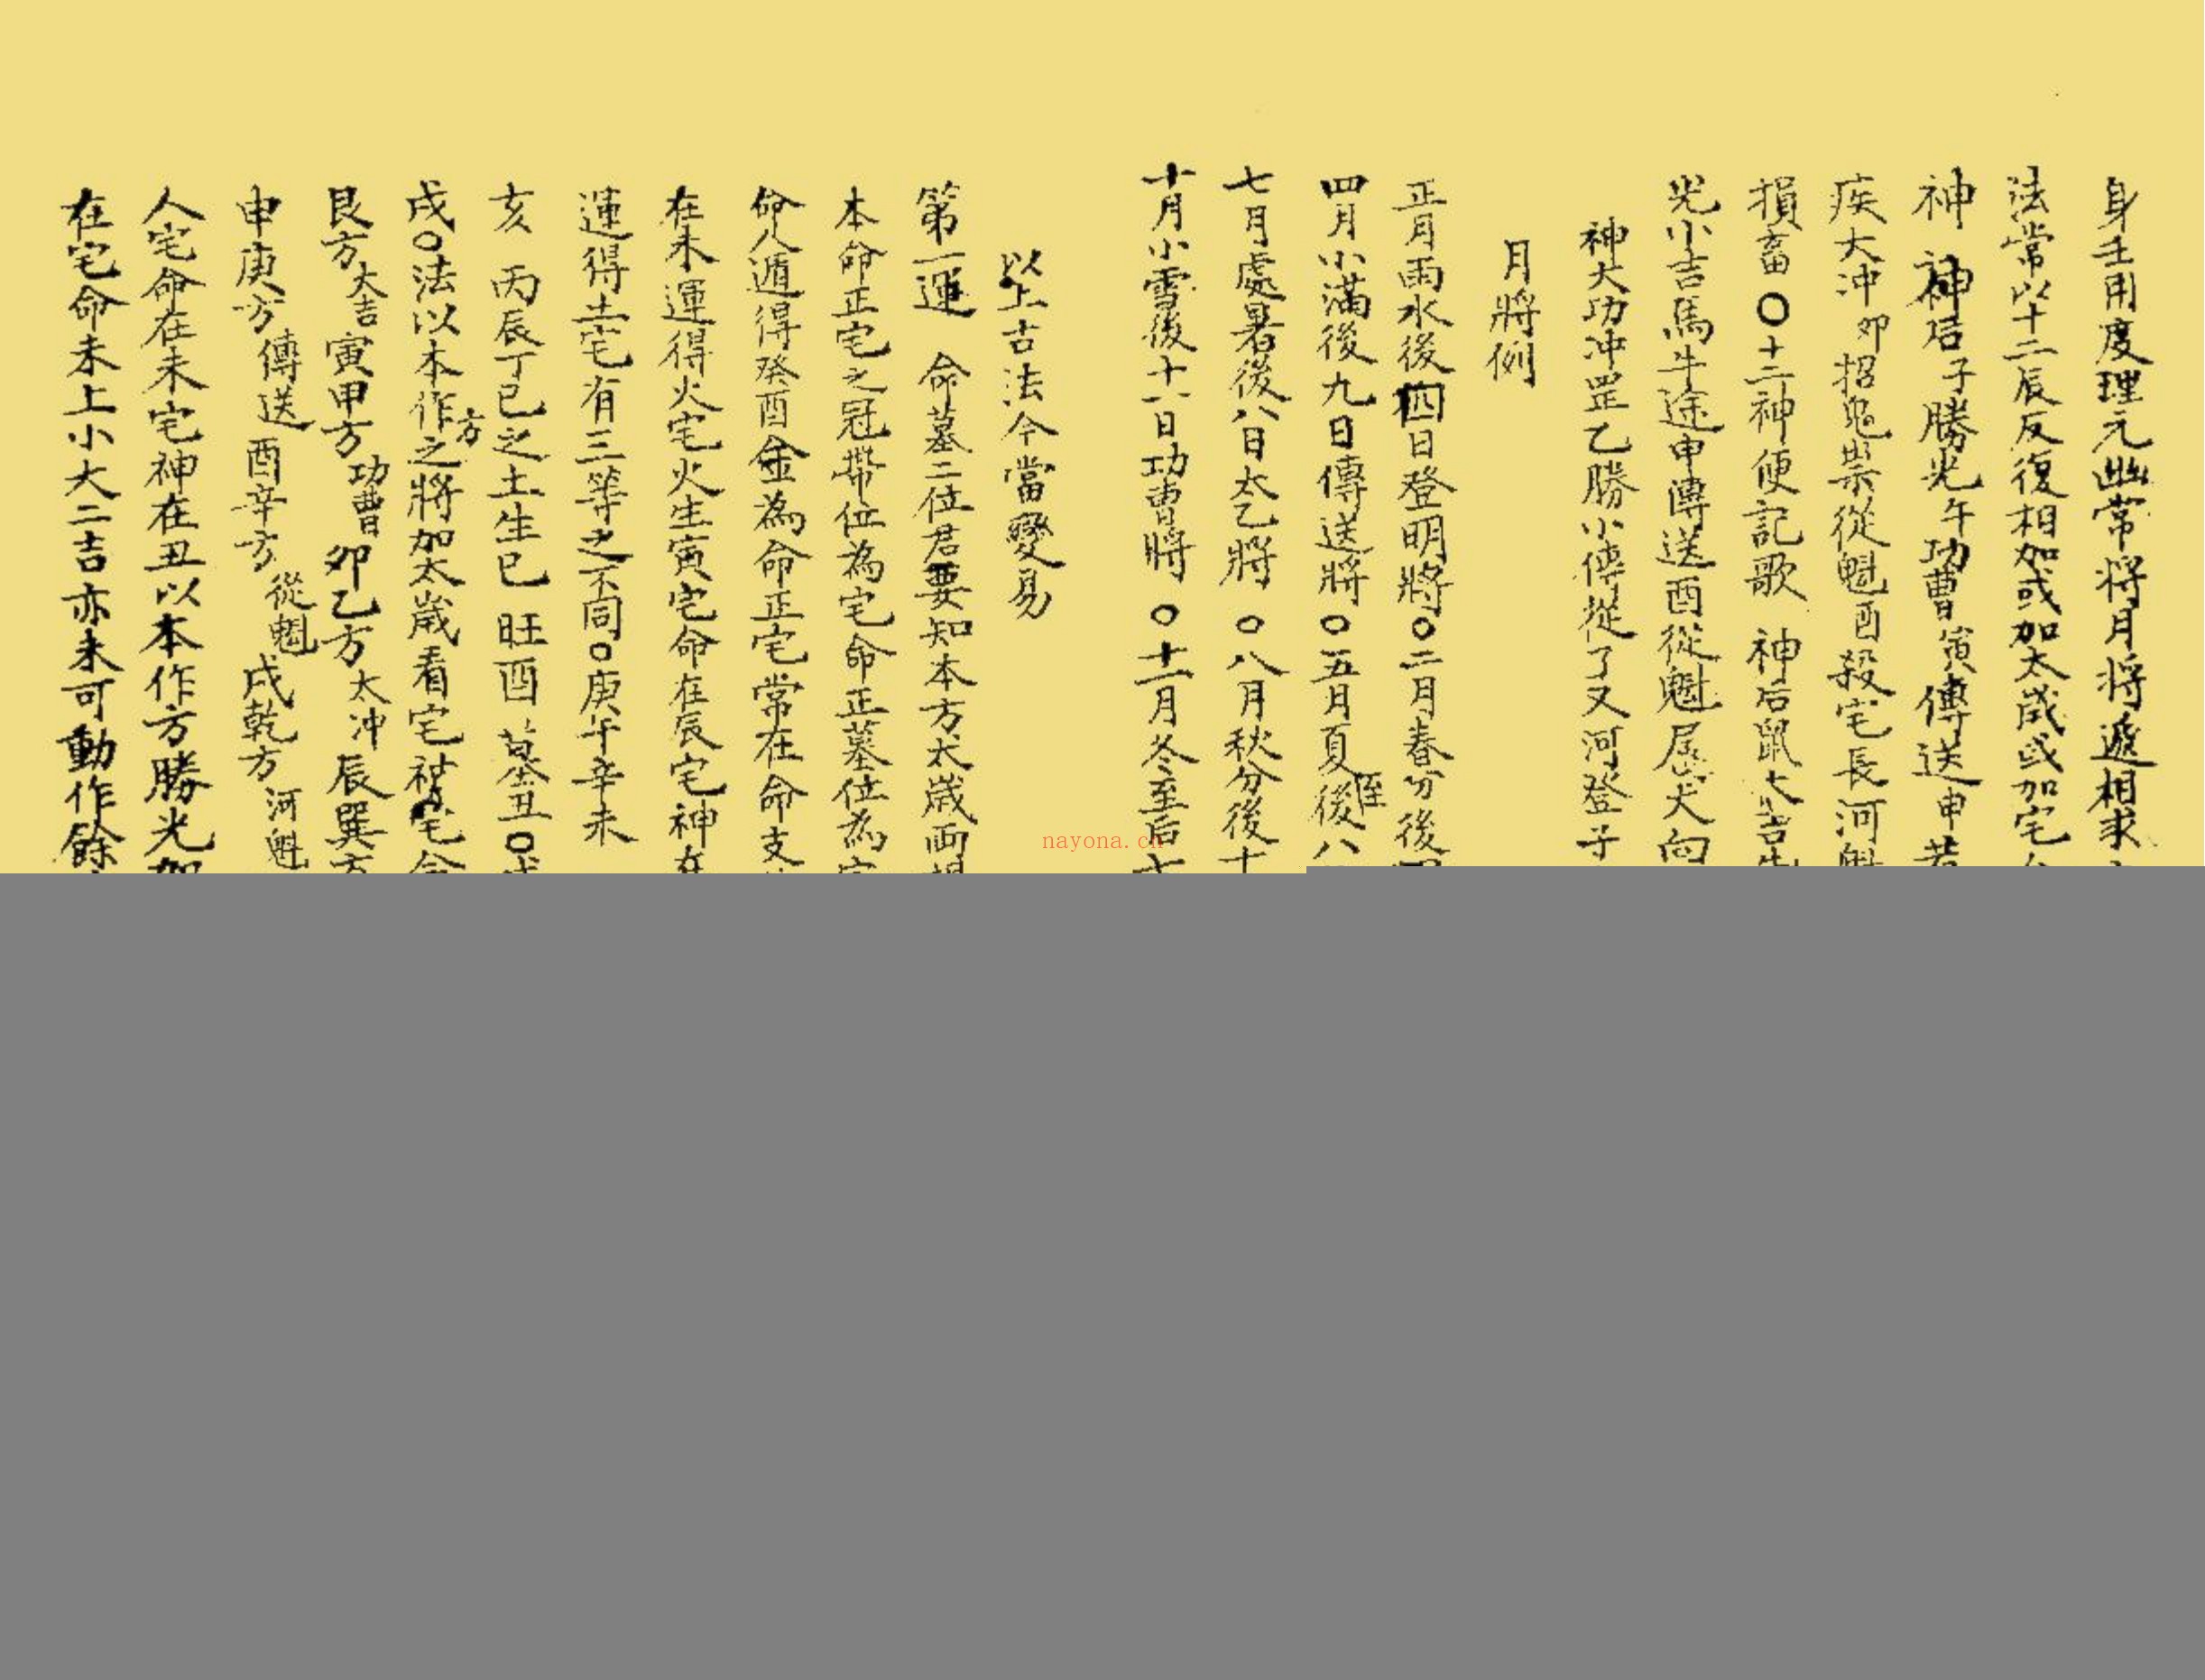 身壬用度理元幽常將月將遞相求
法常以十二辰反復相加或加太歲或加宅
神 神后子勝光午功曹寅傳送申若
疾大冲卯招鬼祟從魁酉殺宅長河魁
損畜〇十二神便記歌 神后鼠大吉牛
光小吉馬牛途申傳送酉從魁屬犬向
神大功冲罡乙勝小傳從了又河登子
月將例
正月雨水後四日登明將〇二月春分後
四月小滿後九日傳送將〇五月夏至後八
七月處暑後八日太乙將〇八月秋分後十
十月小雪後十六日功曹將〇十一月冬至后七
以上古法今當變易
第一運 命墓二位君要知本方太歲兩
本命正宅之冠帶位為宅命正墓位為宅
命人遁得癸酉金為命正宅常在命支
在未運得火宅火生寅宅命在辰宅神在
運得土宅有三等之不同〇庚午辛未
亥 丙辰丁巳之土生巳旺酉墓丑〇戊
戌〇法以本作方之將加太歲看宅神宅命
艮方大吉寅甲方功曹卯乙方太冲辰巽方
申庚方傳送酉辛方從魁戌乾方河魁
人宅命在未宅神在丑以本作方勝光加
在宅命未上小大二吉亦未可動作餘
nayona.cn